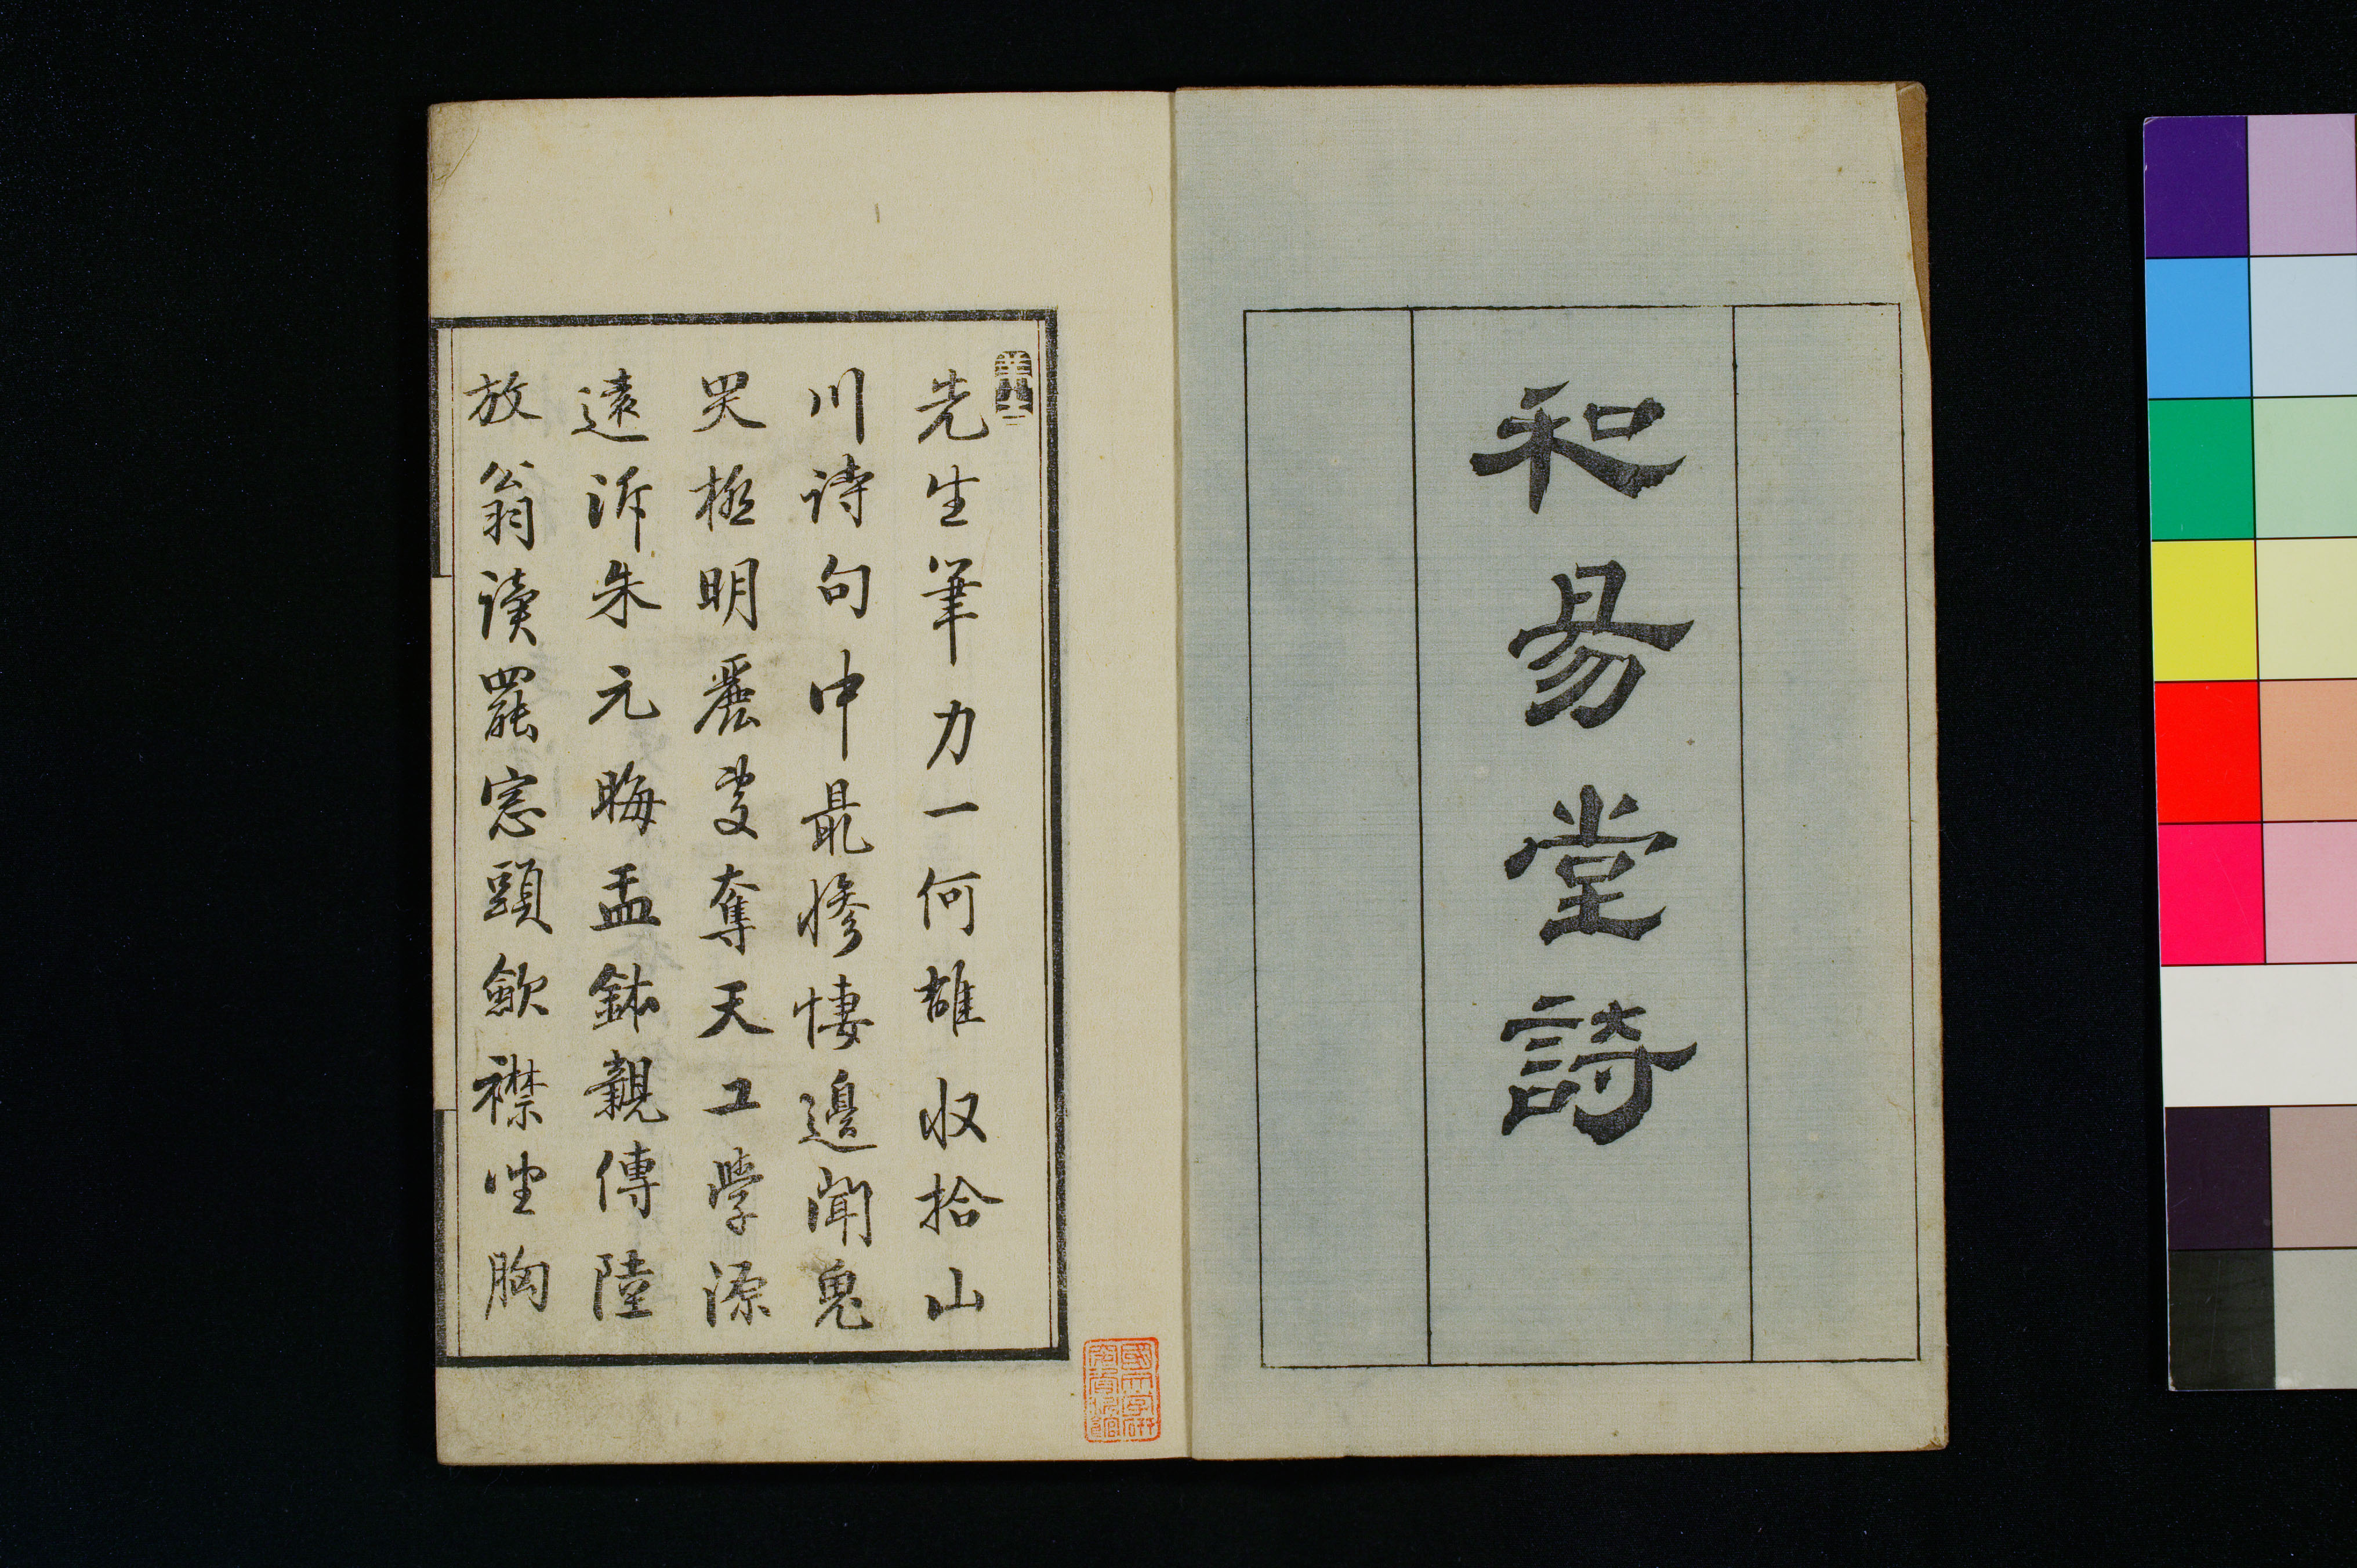 和易堂詩
先生筆力一何雄收拾山
川詩句中最慘悽邊聞鬼
哭極明麗處奪天工學源
遠泝朱元晦盂鉢親傳陸
放翁讀罷窓頭歛襟坐胸